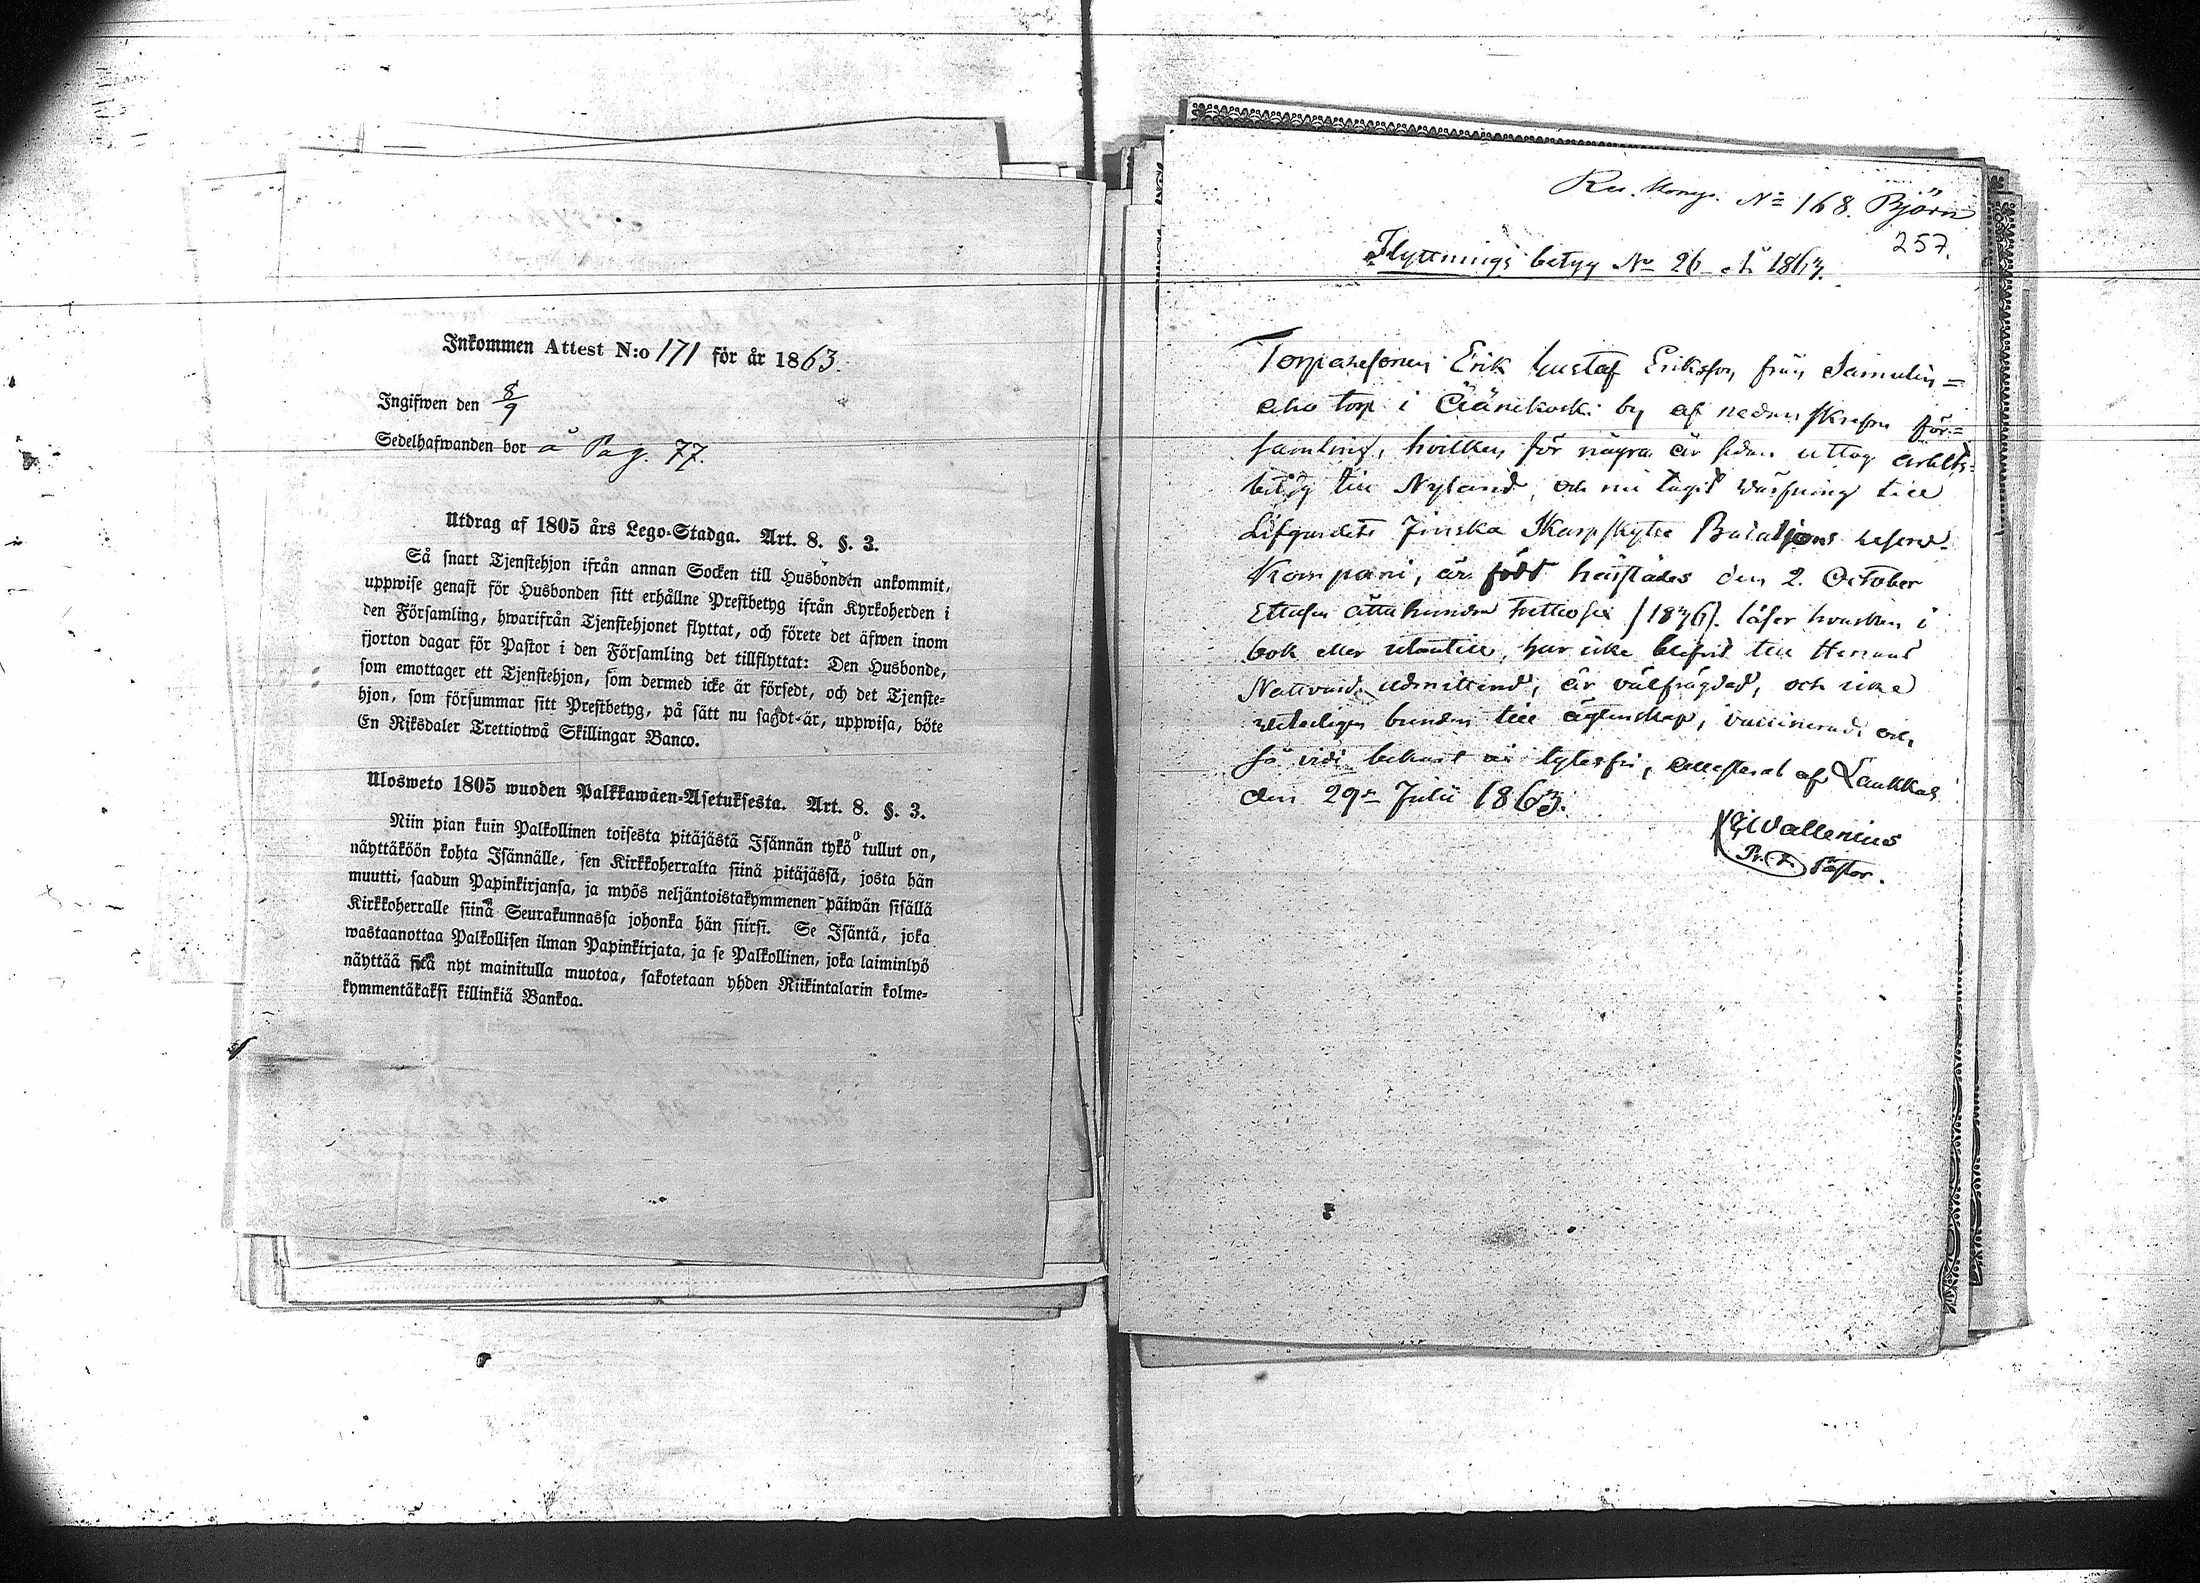 Inkommen Attest N:o 171 för år 1863.
Ingifwen den 8/9
Sedelhafwanden bor å Pag. 77.
Utdrag af 1805 års Lego-Stadga. Art. 8. §. 3.
Så snart Tjenstehjon ifrån annan Socken till Husbonden ankommit,
uppwise genast för Husbonden sitt erhållne Prestbetyg ifrån Kyrkoherden i
den Församling, hwarifrån Tjenstehjonet flyttat, och förete det äfwen inom
fjorton dagar för Pastor i den Församling det tillflyttat: Den Husbonde,
som emottager ett Tjenstehjon, som dermed icke är försedt, och det Tjenste-
hjon, som försummar sitt Prestbetyg, på sätt nu sagdt är, uppwisa, böte
En Riksdaler Trettiotwå Skillingar Banco.
Ulosweto 1805 wuoden Palkkawäen-Asetuksesta. Art. 8. §. 3.
Niin pian kuin Palkollinen toisesta pitäjästä Isännän tykö tullut on,
näyttäköön kohta Isännälle, sen Kirkkoherralta siinä pitäjässä, josta hän
muutti, saadun Papinkirjansa, ja myös neljäntoistakymmenen päiwän sisällä
Kirkkoherralle siinä Seurakunnassa johonka hän siirsi. Se Isäntä, joka
wastaanottaa Palkollisen ilman Papinkirjata, ja se Palkollinen, joka laiminlyö
näyttää sitä nyt mainitulla muotoa, sakotetaan yhden Riikintalarin kolme-
kymmentäkaksi killinkiä Bankoa.
Res. Komp. No 168. Björn
257.
Flyttnings betyg No 26 å 1863.
Torparesonen Erik Gustaf Eriksson från Samulin=
aho torp i Äänekoski by af nedanskrefne för=
samling, hvilken för några år sedan uttog arbets=
betyg till Nyland, och nu tagit värfning till
Lifgardets Finska Skarpskytte Bataljons reserv-
Kompani, är född härstädes den 2. October
Ettusen åttahundra Trettiosex (1836). läser hvarken i
bok eller utantill, har icke blifvit till Herrans
Nattvard admitterad, är välfrägdad, och icke
veterligen bunden till ägtenskap, vaccinerad och
så vidt bekant är lytesfri, attesterat af Laukkas
den 29de Julii 1863.
Wallenius
Pastor.